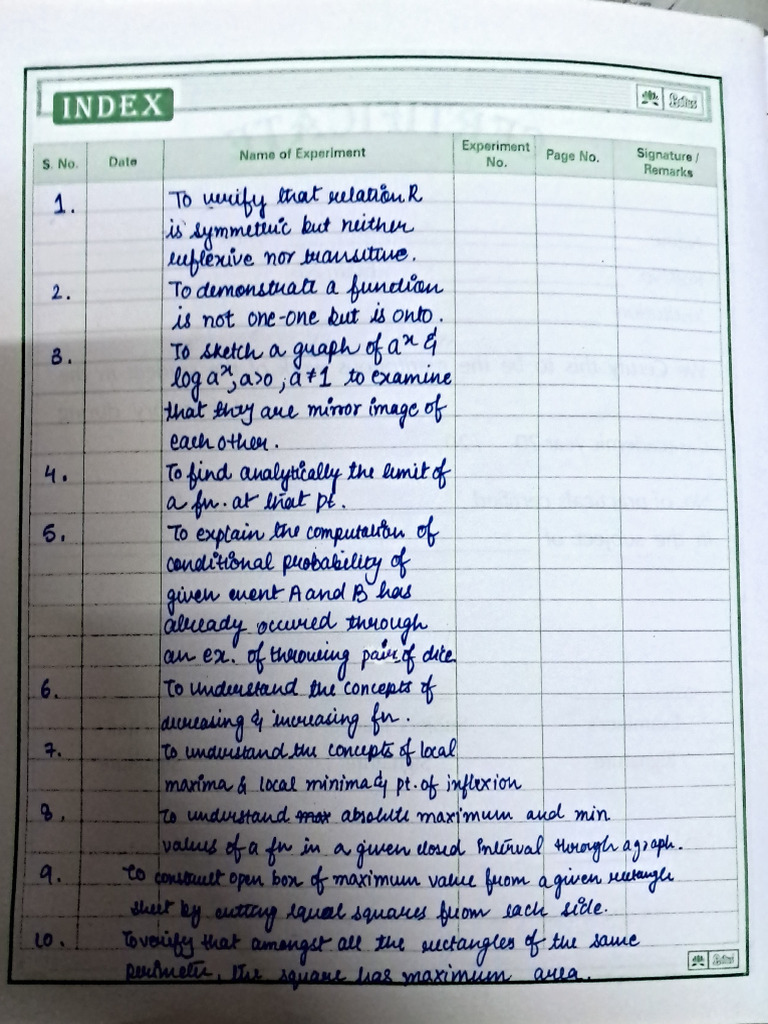 INDEX
S. No. Date Name of Experiment Experiment No. Page No. Signature / Remarks
1. To verify that relation R
is symmetric but neither
reflexive nor transitive.
2. To demonstrate a function
is not one-one but is onto.
3. To sketch a graph of aˣ &
log aˣ, a>0, a≠1 to examine
that they are mirror image of
each other.
4. To find analytically the limit of
a fn. at that pt.
5. To explain the computation of
conditional probability of
given event A and B has
already occured through
an ex. of throwing pair of dice.
6. To understand the concepts of
decreasing & increasing fn.
7. To understand the concepts of local
maxima & local minima & pt. of inflexion
8. To understand max absolute maximum and min
values of a fn in a given closed interval through a graph.
9. To construct open box of maximum value from a given rectangle
sheet by cutting equal squares from each side.
10. To verify that amongst all the rectangles of the same
perimeter, the square has maximum area.